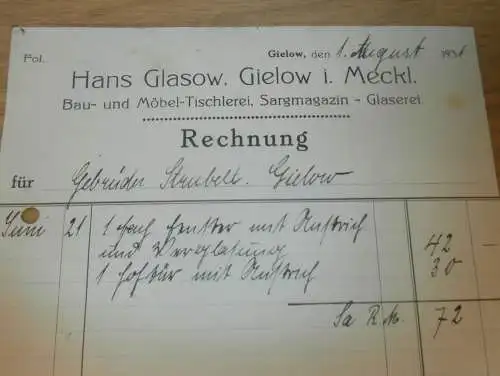 Fol.
Gielow, den 1. August 1931
Hans Glasow, Gielow i. Meckl.
Bau- und Möbel-Tischlerei, Sargmagazin - Glaserei
Rechnung
für Gebrüder Strubelt. Gielow
Juni 21 1 fach Fenster mit Anstrich
und Verglasung 42 -
1 Hoftür mit Anstrich 30 -
Sa R.M. 72 -